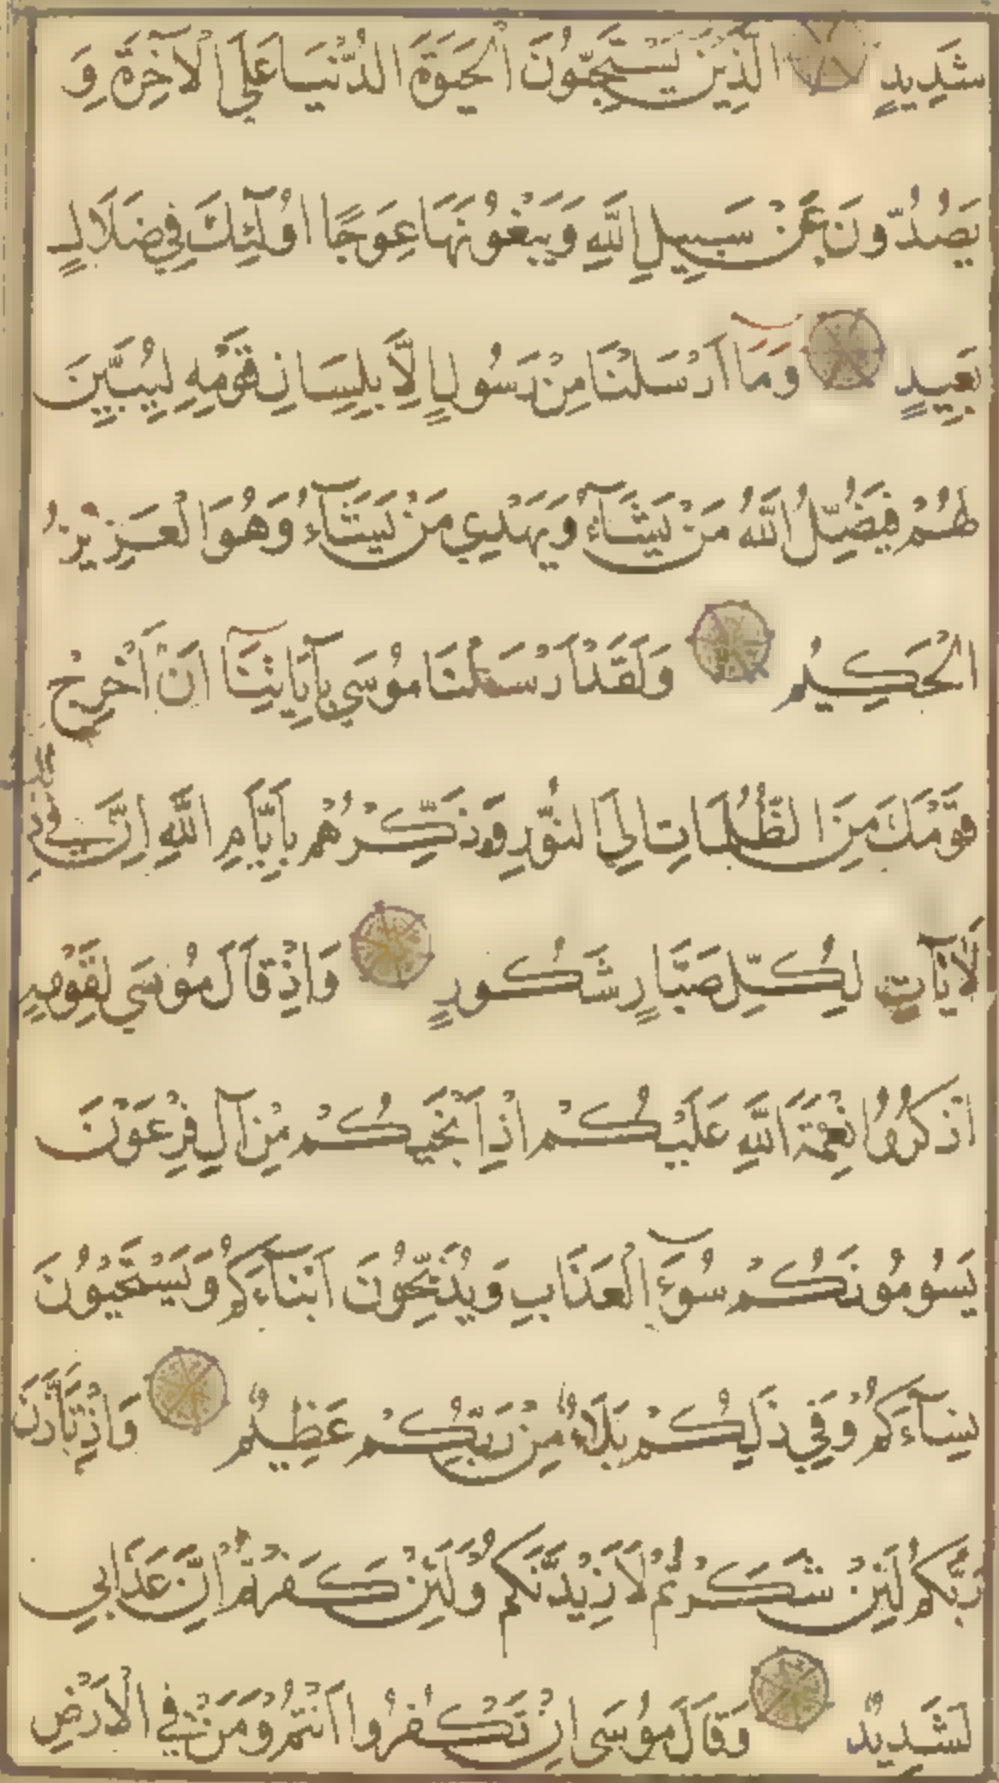 شَدِيدٍ الَّذِينَ يَسْتَحِبُّونَ الْحَيَوةَ الدُّنْيَا عَلَى الْآخِرَةِ وَ
يَصُدُّونَ عَنْ سَبِيلِ اللَّهِ وَيَبْغُونَهَا عِوَجًا اُولَٓئِكَ فِي ضَلَالٍ
بَعِيدٍ وَمَا اَرْسَلْنَا مِنْ رَسُولٍ اِلَّا بِلِسَانِ قَوْمِهِ لِيُبَيِّنَ
لَهُمْ فَيُضِلُّ اللَّهُ مَنْ يَشَٓاءُ وَيَهْدِي مَنْ يَشَٓاءُ وَهُوَ الْعَزِيزُ
الْحَكِيمُ وَلَقَدْ اَرْسَلْنَا مُوسَى بِآيَاتِنَٓا اَنْ اَخْرِجْ
قَوْمَكَ مِنَ الظُّلُمَاتِ اِلَى النُّورِ وَذَكِّرْهُمْ بِاَيَّامِ اللَّهِ اِنَّ فِي ذ
لَآيَاتٍ لِكُلِّ صَبَّارٍ شَكُورٍ وَاِذْ قَالَ مُوسَى لِقَوْمِهِ
اذْكُرُوا نِعْمَةَ اللَّهِ عَلَيْكُمْ اِذْ اَنْجَيكُمْ مِنْ آلِ فِرْعَوْنَ
يَسُومُونَكُمْ سُوٓءَ الْعَذَابِ وَيُذَبِّحُونَ اَبْنَٓاءَكُمْ وَيَسْتَحْيُونَ
نِسَٓاءَكُمْ وَفِي ذَلِكُمْ بَلَاءٌ مِنْ رَبِّكُمْ عَظِيمٌ وَاِذْ تَاَذَّنَ
رَبُّكُمْ لَئِنْ شَكَرْتُمْ لَاَزِيدَنَّكُمْ وَلَئِنْ كَفَرْتُمْ اِنَّ عَذَابِي
لَشَدِيدٌ وَقَالَ مُوسَى اِنْ تَكْفُرُوا اَنْتُمْ وَمَنْ فِي الْاَرْضِ